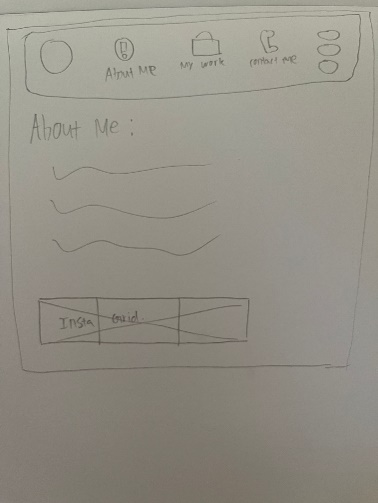 About Me
My work
contact me
About Me :
Insta Grid.